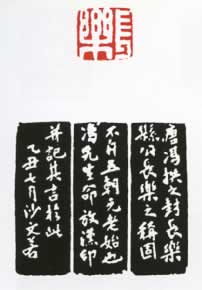 長樂
唐馮拱之封長樂
縣公長樂之稱固
不自五朝元老始也
馮先生命放漢印
并記其言於此
乙丑七月沙文若